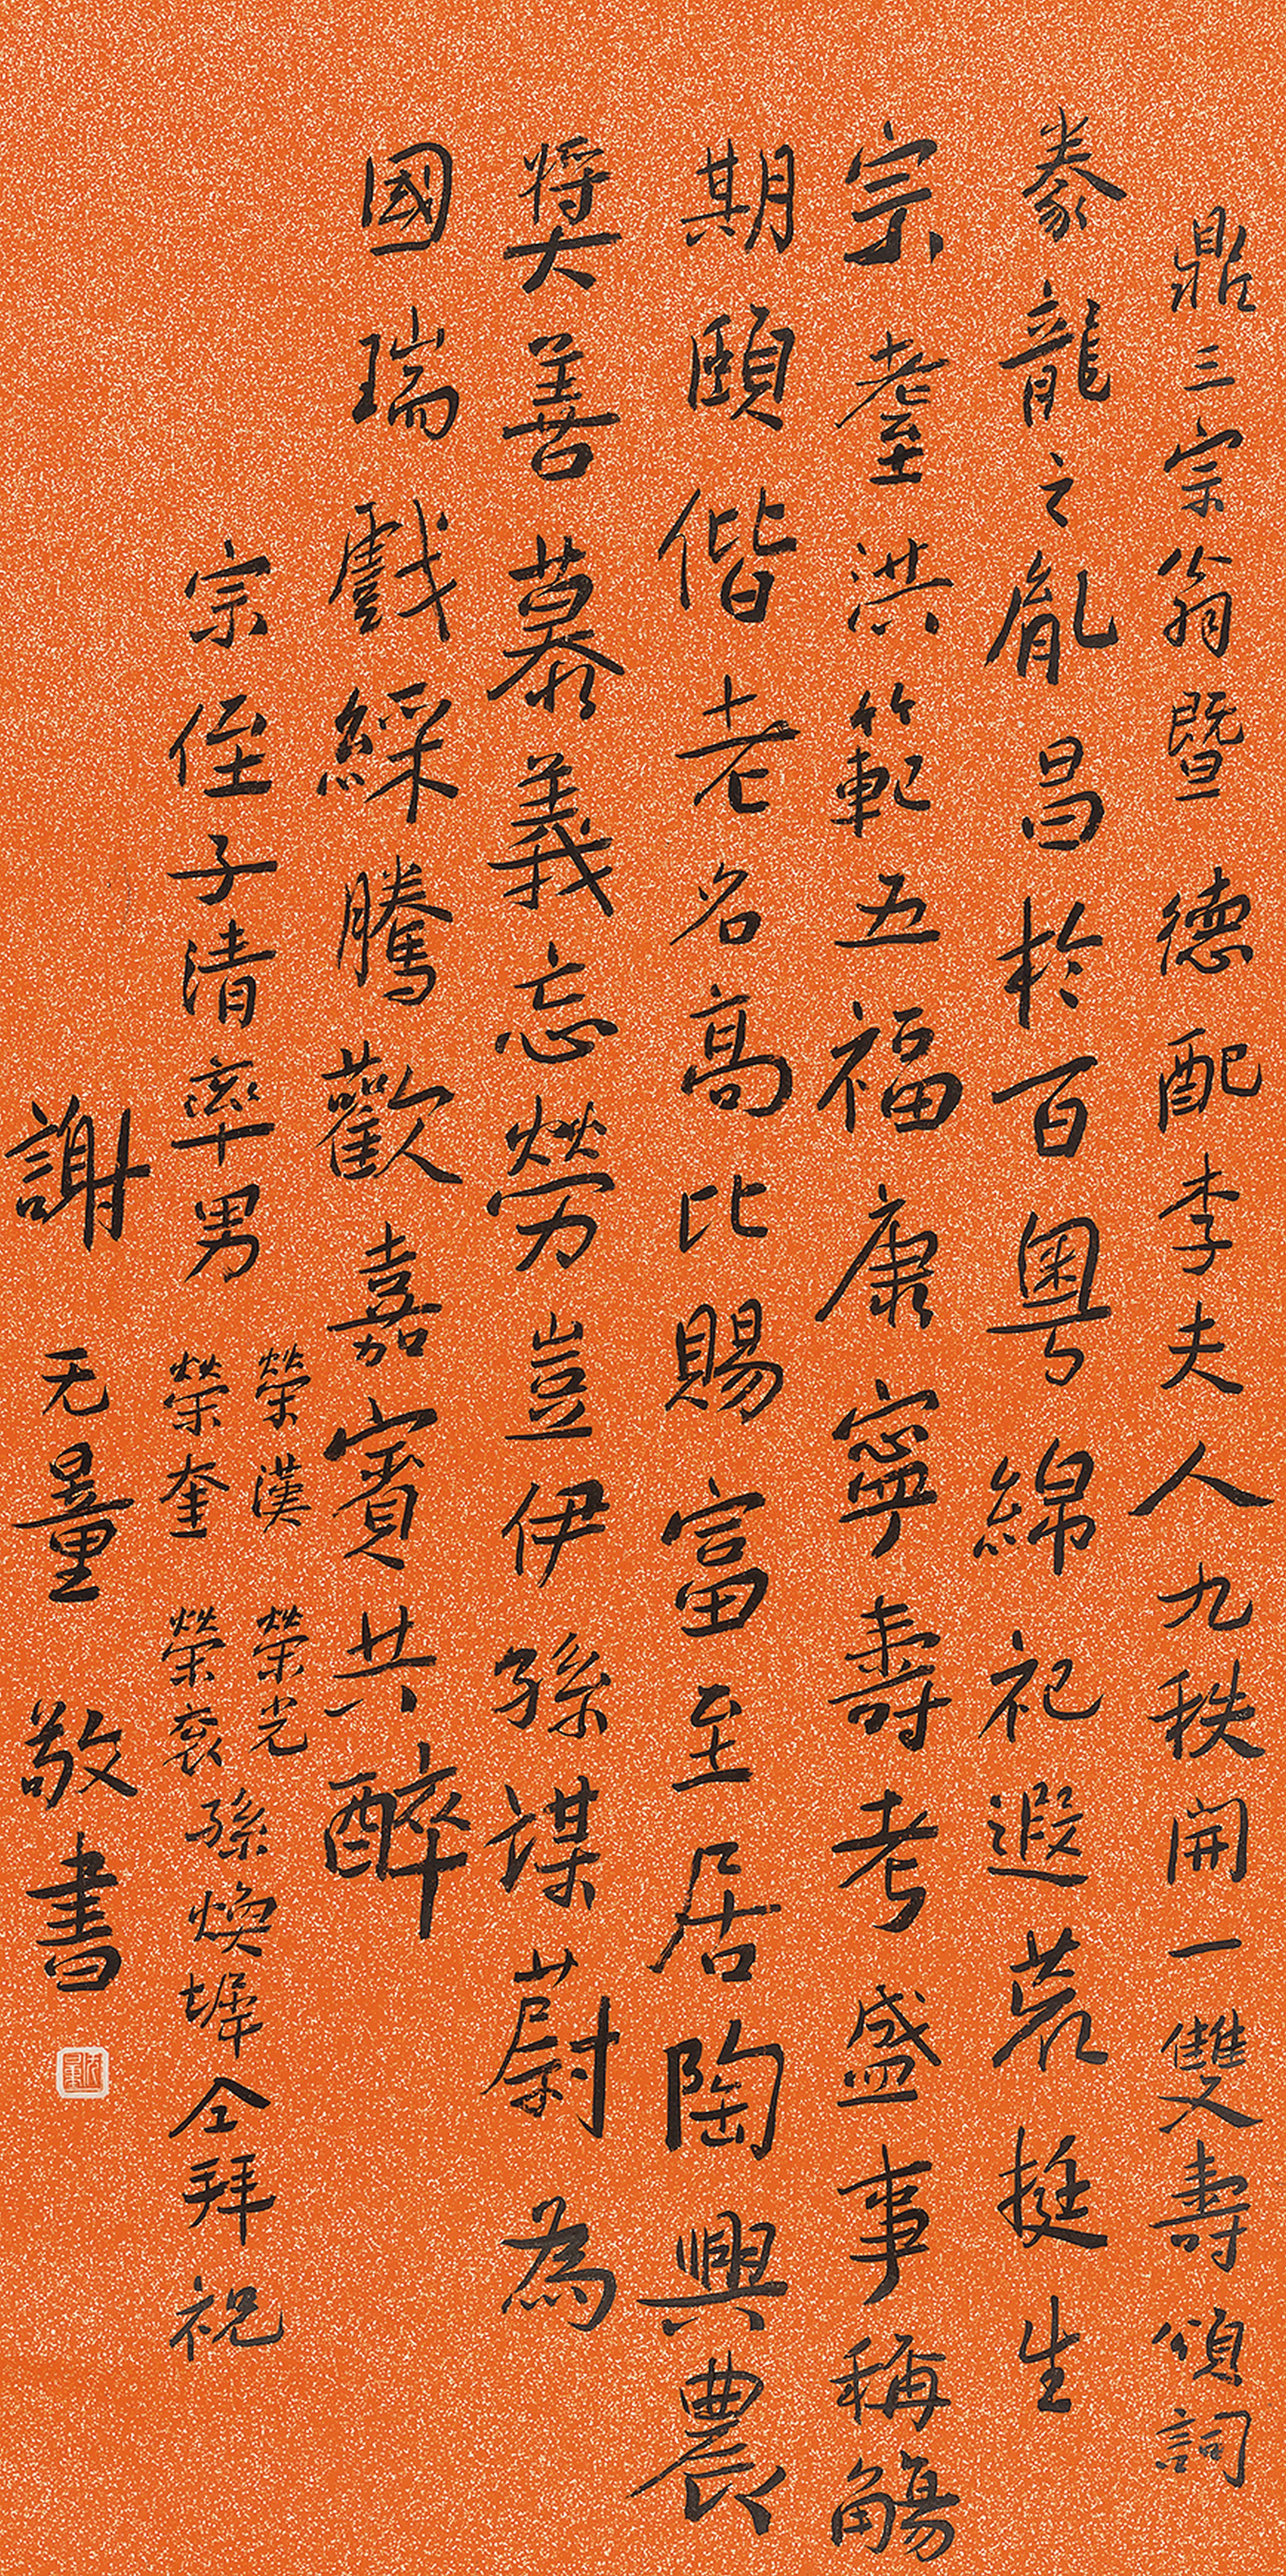 鼎三宗翁暨德配李夫人九秩開一雙壽頌詞
豢龍之胤昌於百粵綿祀遐荒挺生
宗耋洪範五福康寧壽考盛事稱觴
期頤偕老名高比賜富至居陶興農
獎善慕義忘勞豈伊孫謀蔚為
國瑞戲綵騰歡嘉賓共醉
宗侄子清率男榮漢榮奎榮光榮袞孫煥墀仝拜祝
謝无量敬書
无量